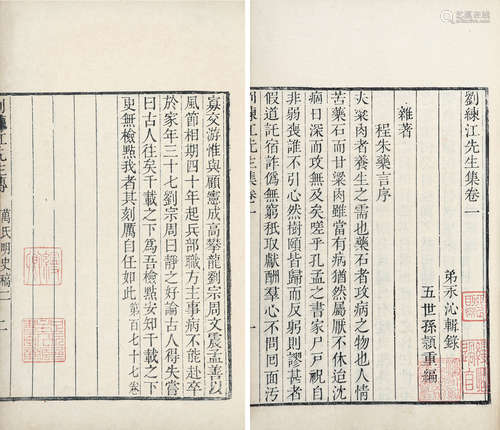 劉練江先生集卷一
弟永沁輯錄
五世孫穎重編
雜著
程朱藥言序
夫粱肉者養生之需也藥石者攻病之物也人情
苦藥石而甘粱肉雖當有病猶然屬厭不休迨沈
痼日深而攻無及矣嗟乎孔孟之書家尸戶祝自
非弱喪誰不引心然樹頤皆歸而反躬則謬甚者
假道託宿詐偽無窮秪取獻酬羣心不問回面汚
劉練江先生集 卷一
寡交游惟與顧憲成高攀龍劉宗周文震孟善以
風節相期四十年起兵部職方主事病不能赴卒
於家年三十七劉宗周曰靜之好論古人得失嘗
曰古人往矣千載之下爲吾檢點安知千載之下
更無檢點我者其刻厲自任如此第百七十七卷
劉練江先生傳 萬氏明史稿 二